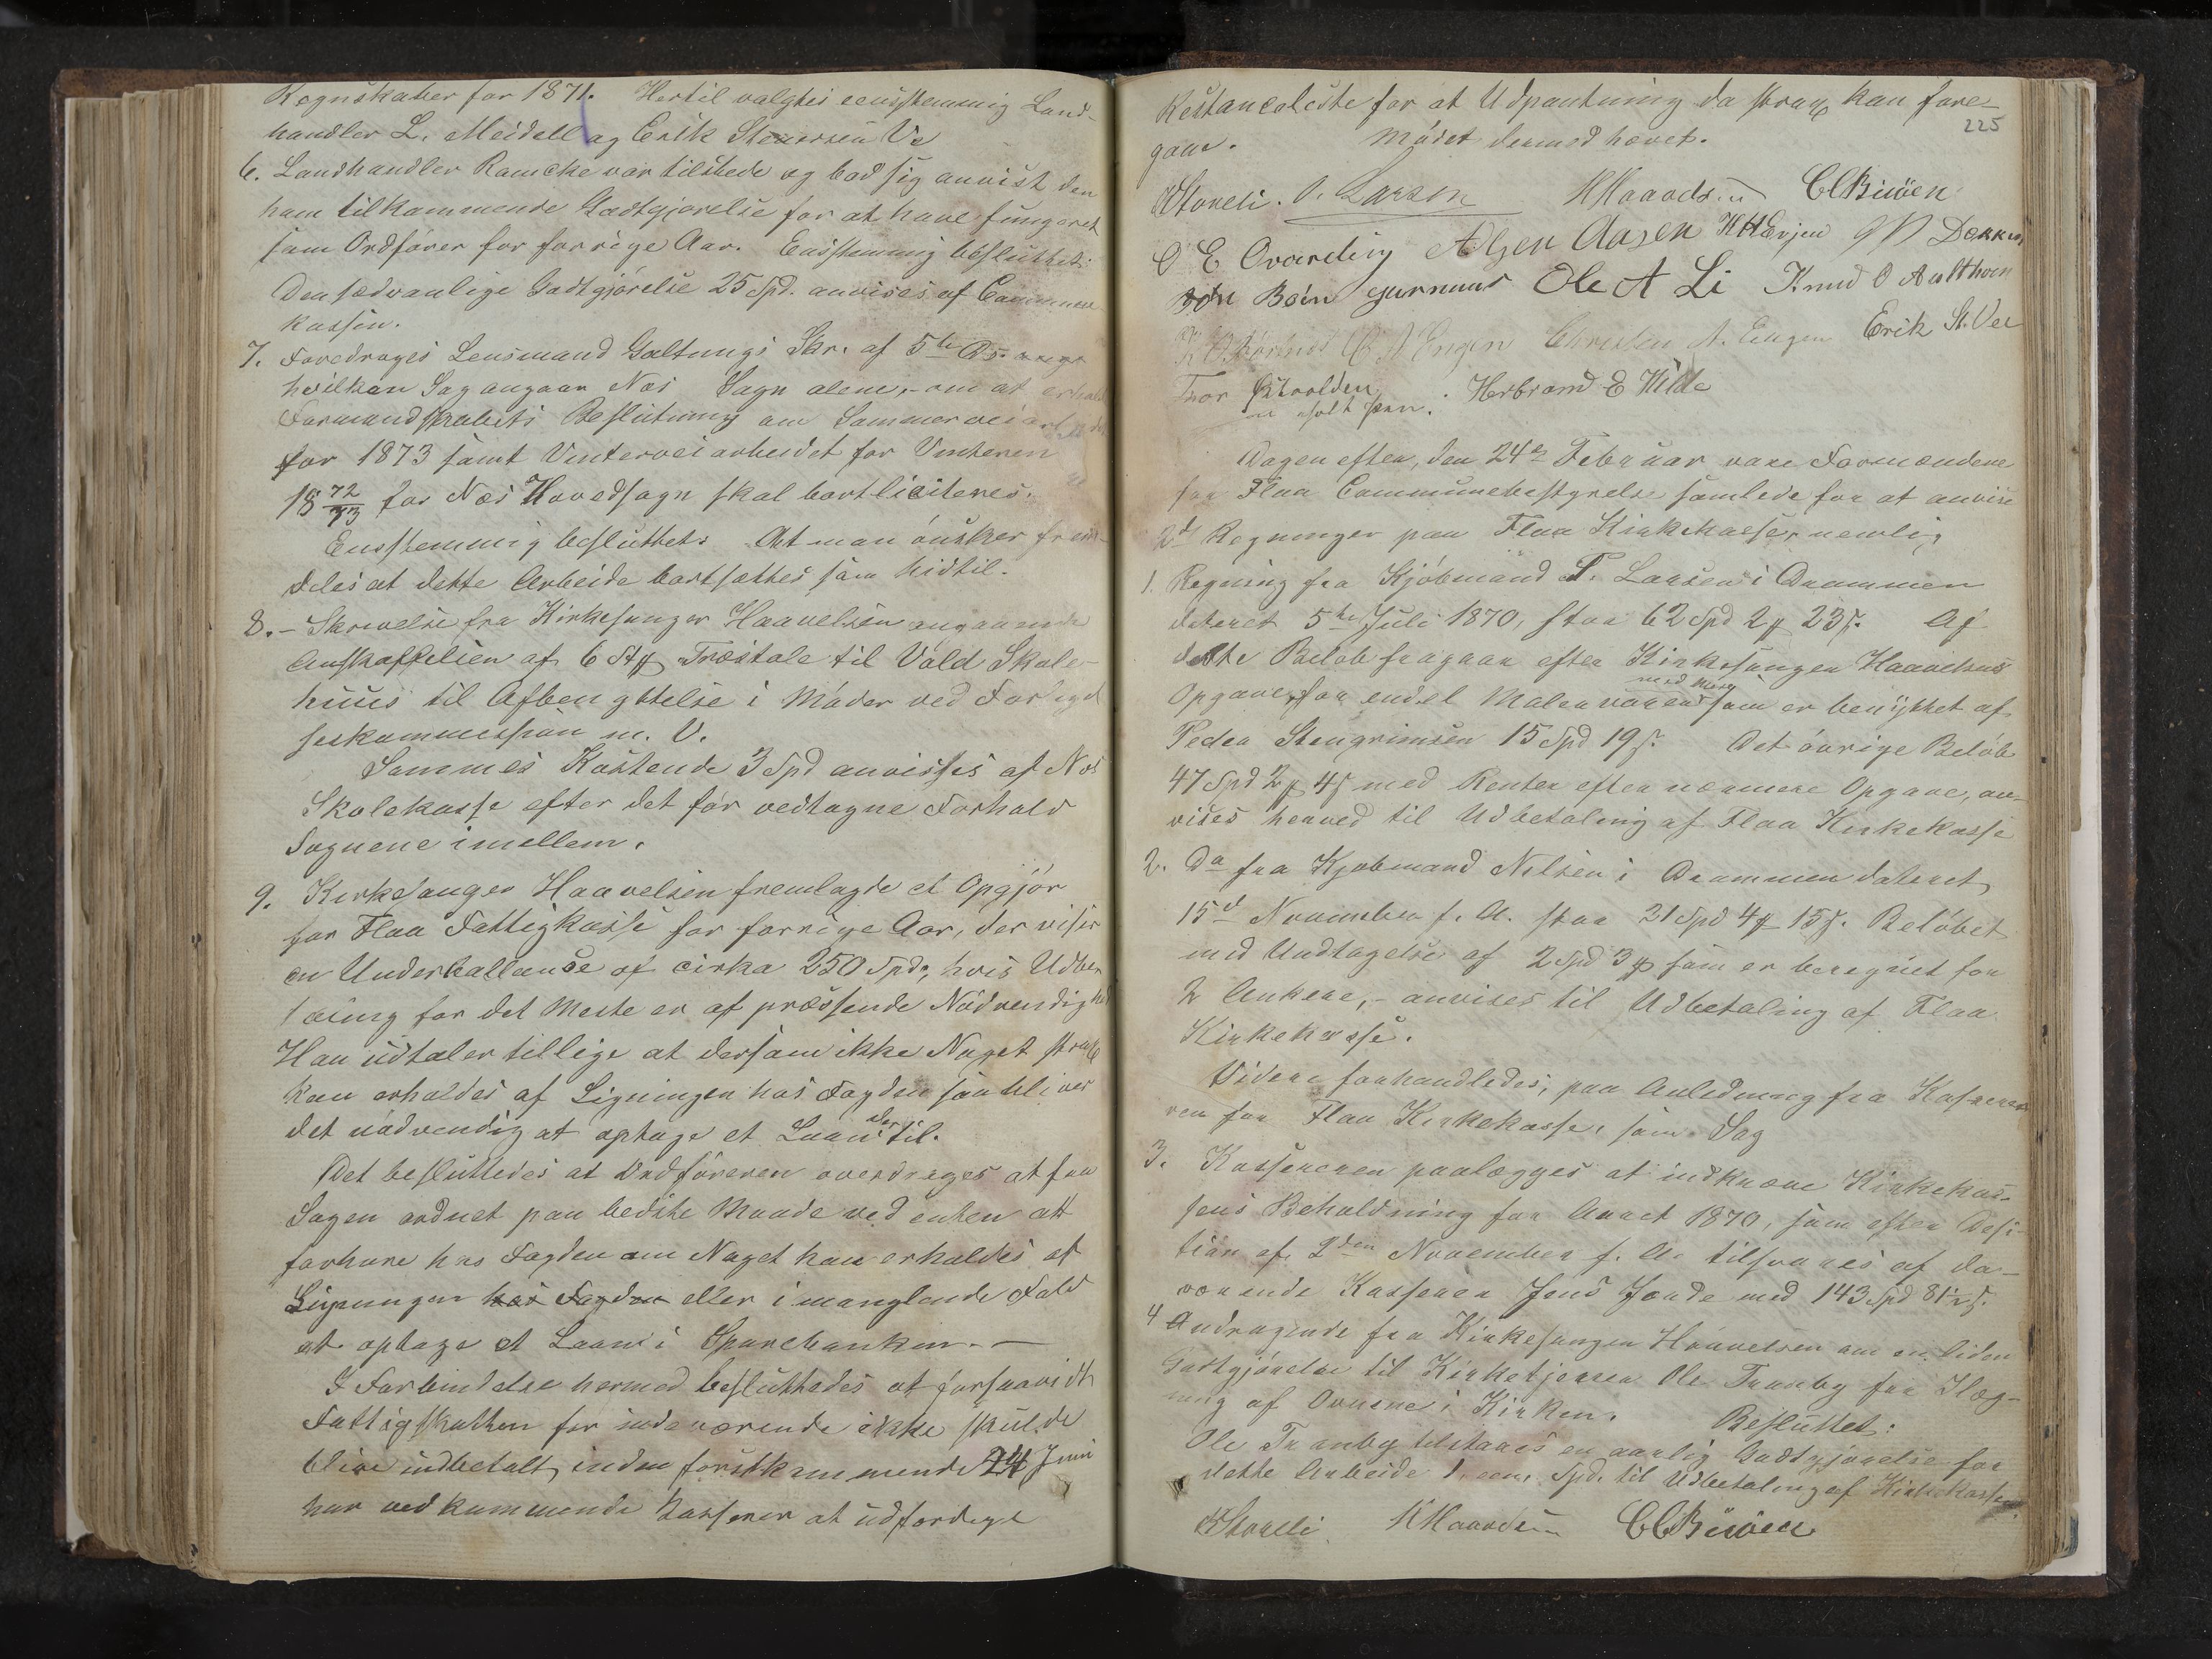 Regnskaber for 1871. Hertil valgtes eensstemmig Land-
handler L. Meidell og Erik Steversen Ve
6. Landhandler Ramcke var tilstede og bad sig anvist den
ham tilkommende Godtgjørelse for at have fungeret
som Ordfører for forrige Aar. Eensstemmig besluttet:
Den sædvanlige Godtgjørelse 25 Spd. anvises af Commune
kassen.
7. Foredroges Lensmand Galtungs Skr. af 5te Ds.
hvilken Sag angaar Næs Sogn alene, - om at
Formandskabets Beslutning om Sommerveiarbeidet
for 1873 samt Vinterveiarbeidet for Vinteren
1872/73 for Næs Hovedsogn skal bortliciteres.
Eensstemmig besluttet: At man ønsker frem-
deles at dette Arbeide bortsættes som hidtil.
8. - Skrivelse fra Kirkesanger Haavelsen angaaende
Anskaffelsen af 6 Stk Træstole til Vold Skole-
huus til Afbenyttelse i Møder ved Forligel
seskommission m. V.
Sammes Kostende 3 Spd anvises af Næs
Skolekasse efter det før vedtagne Forhold
Sognene imellem.
9. Kirkesanger Haavelsen fremlagde et Opgjør
for Flaa Fattigkasse for forrige Aar, der viser
en Underballance af cirka 250 Spd, hvis Udbe
taling for det Meste er af præssende Nødvendighed
Han udtaler tillige at dersom ikke Noget strax
kan erholdes af Ligningen hos Fogden saa bliver
det nødvendig at optage et Laan dertil.
Det besluttedes at Ordføreren overdrages at faa
Sagen ordnet paa bedste Maade ved enten at
forhøre hos Fogden om Noget kan erholdes af
Ligningen hos Fogden eller i manglende Fald
at optage et Laan i Sparebanken. -
I Forbindelse hermed besluttedes at forsaavidt
Fattigskatten for indeværende ikke skulde
blive indbetalt inden førstkommende 24 Juni
har vedkommende Kasserer at udfærdige
225
Restanceliste for at Udpantning da strax kan fore-
gaae. Mødet dermed hævet.
Storeli. O. Larsen H Haavdsen C C Biuöen
O E Qvarding A Olsen Aasen K H Evjen
Bøin Gunnus Ole A Li Knud O
A Engen Christen A. Engen Erik St. Vee
Tror Herbrand E Hilde
m holt pen.
Dagen efter, den 24de Februar vare Formændene
for Flaa Communebestyrelse samlede for at anvise
2de Regninger paa Flaa Kirkekasse, nemlig
1. Regning fra Kjøbmand T. Larsen i Drammen
dateret 5te Juli 1870, stor 62 Spd 2 # 23 s. Af
dette Beløb fragaar efter Kirkesanger Haavelsens
Opgave, for endel Malervarer med mere som er benyttet af
Peder Stengrimsen 15 Spd 19 s. Det øvrige Beløb
47 Spd 2 # 4 s med Renter efter nærmere Opgave, an-
vises herved til Udbetaling af Flaa Kirkekasse
2. Do fra Kjøbmand Nilsen i Drammen dateret
15d November f. A. stor 21 Spd 4 # 15 s. Beløbet
med Undtagelse af 2 Spd 3 # som er beregnet for
2 Ankere, - anvises til Udbetaling af Flaa
Kirkekasse.
Videre forhandledes, paa Anledning fra Kassere
ren for Flaa Kirkekasse, som Sag
3. Kassereren paalægges at indkræve Kirkekas-
sens Beholdning for Aaret 1870, som efter Desi-
tion af 2den November f. A. tilsvares af da-
værende Kasserer Jens Jorde med 143 Spd 81½ s.
4 Andragende fra Kirkesanger Haavelsen om en liden
Godtgjørelse til Kirketjener Ole Tranby for Ilæg-
ning af Ovnene i Kirken. Besluttet:
Ole Tranby tilstaaes en aarlig Godtgjørelse for
dette Arbeide 1, een, Spd. til Udbetaling af Kirkekassen
Storeli H Haavdsen C C Biuöen